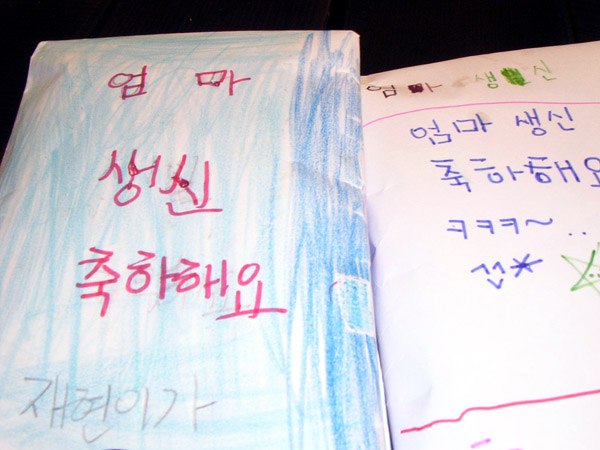 엄마
생신
축하해요
재현이가
엄마 생신
엄마 생신
축하해요
ㅋㅋㅋ~..
^^*